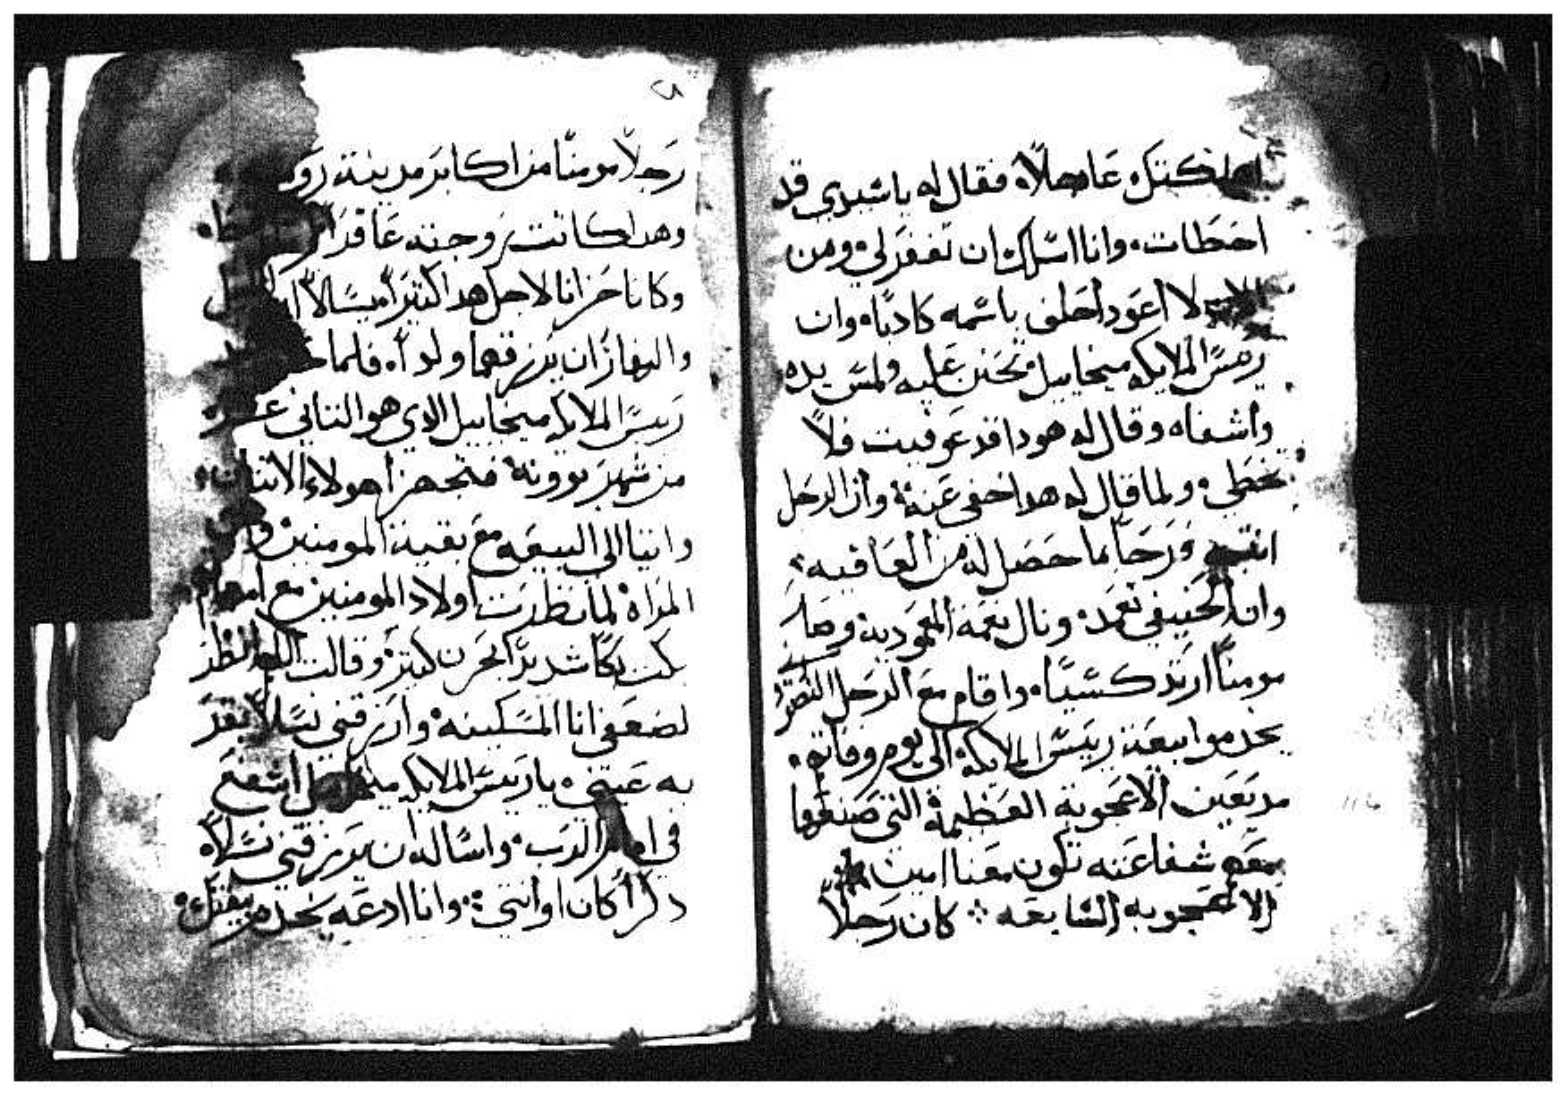 اهلكتك عاجلاً، فقال له ياسيدي قد
اخطات، وانا اسالك ان تغفر لي، ومن
الان لا اعود احلف باسمه كادبًا، وان
رييس الملايكه ميخاييل تحنن عليه ولمس يده
واشفاه وقال له هودا قد عوفيت فلا
تخطي، ولما قال له هدا اختفي عنه، وان الرجل
ابتهج وفرح بما حصل له من العافيه،
وان الحنيفي تعمد، ونال نعمة المعموديه، وصار
مومنًا ارتدكسيًا، واقام مع الرجل النصراني
يخدموا بيعة رييس الملايكه الي يوم وفاتهم،
مديعين الاعجوبه العظيمة التي صنعها
معهم شفاعته تكون معنا امين
الاعجوبه السابعه ÷ كان رجلاً
رجلاً مومنًا من اكابر مدينة رو
وهدا كانت زوجته عاقرًا
وكانا حزانا لاجل هدا كثيرًا، يسالا
والبهار ان يرزقهما ولدًا، فلما
رييس الملايكه ميخاييل الدي هو التاني عشر
من شهر بوونه، فتجهزا هولاء الاتنان،
واتيا الي البيعه مع بقية المومنين،
المراه، لما نظرت اولاد المومنين مع امهاتهم
بكت بكًا شديدًا بحزن كبير، وقالت اللهم انظر
لضعفي انا المسكينه، وارزقني نسلًا تقر
به عيني، يا رييس الملايكه ميخاييل اشفع
في امام الرب، واساله ان يرزقني نسلاً،
دكرًا كان او انتي، وانا ادعه يخدم هيكلك،